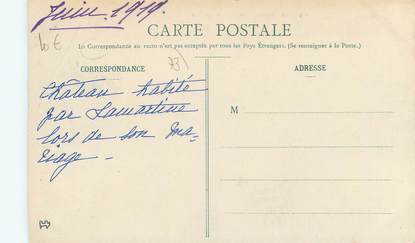 Juin 1919.
10 €
CARTE POSTALE
La Correspondance au recto n'est pas acceptée par tous les Pays Etrangers. (Se renseigner à la Poste.)
CORRESPONDANCE
73)
ADRESSE
Château habité
par Lamartine
lors de son ma-
riage -
M